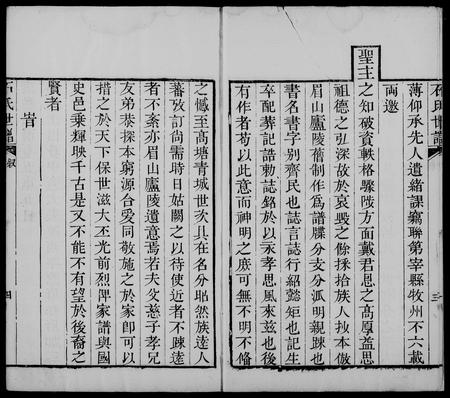 石氏世譜
三
薄仰承先人遺緒課竊聯第宰縣牧州不六載
兩邀
聖主
之知破資軼格驟陟方面戴君恩之高厚益思
祖德之弘深故於哀毀之餘揉拾族人抄本倣
眉山廬陵舊制作爲譜牒分支分派明親踈也
書名書字别齊民也誌言誌行紹懿矩也記生
卒配葬記誥勅誌銘於以永孝思風來兹也後
有作者苟以此意而神明之庶可無不明不脩
之憾至高塘青城世次具在名分昭然族逺人
蕃攷訂尚需時日姑闕之以待使近者不踈逺
者不紊亦眉山廬陵遺意焉若夫父慈子孝兄
友弟恭探本窮源合愛同敬施之於家卽可以
措之於天下保世滋大丕光前烈俾家譜與國
史邑乗輝映千古是又不能不有望於後裔之
賢者
旹
石氏世譜
叙
四